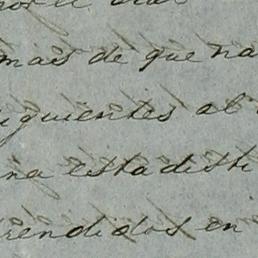 mas de que na
iguientes al
na estadisti
rendidos en